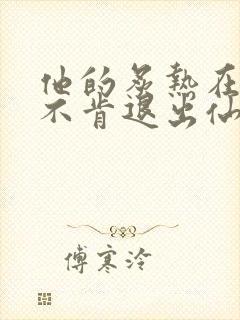 他的炙热在
不肯退出仙
傅寒泠